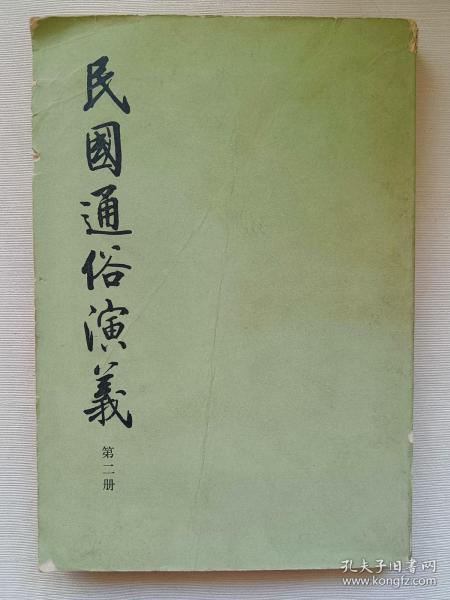 民國通俗演義
第二册
孔夫子旧书网
www.kongfz.com